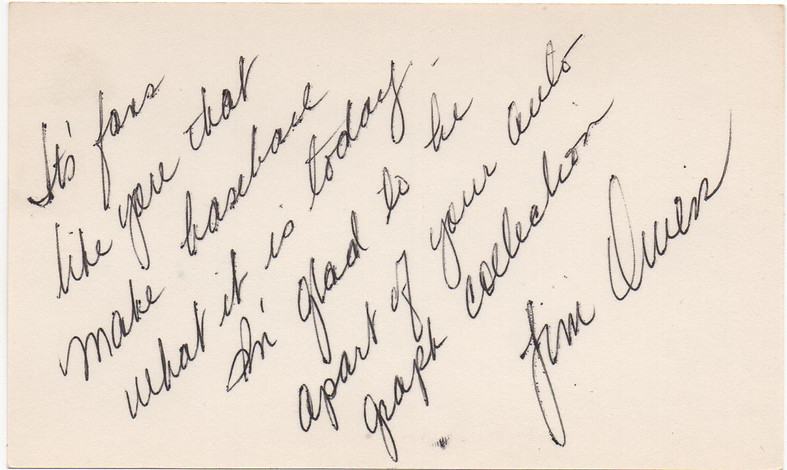 It's fans
like you that
make baseball
what it is today.
I'm glad to be
apart of your auto
graph collection
Jim Owens